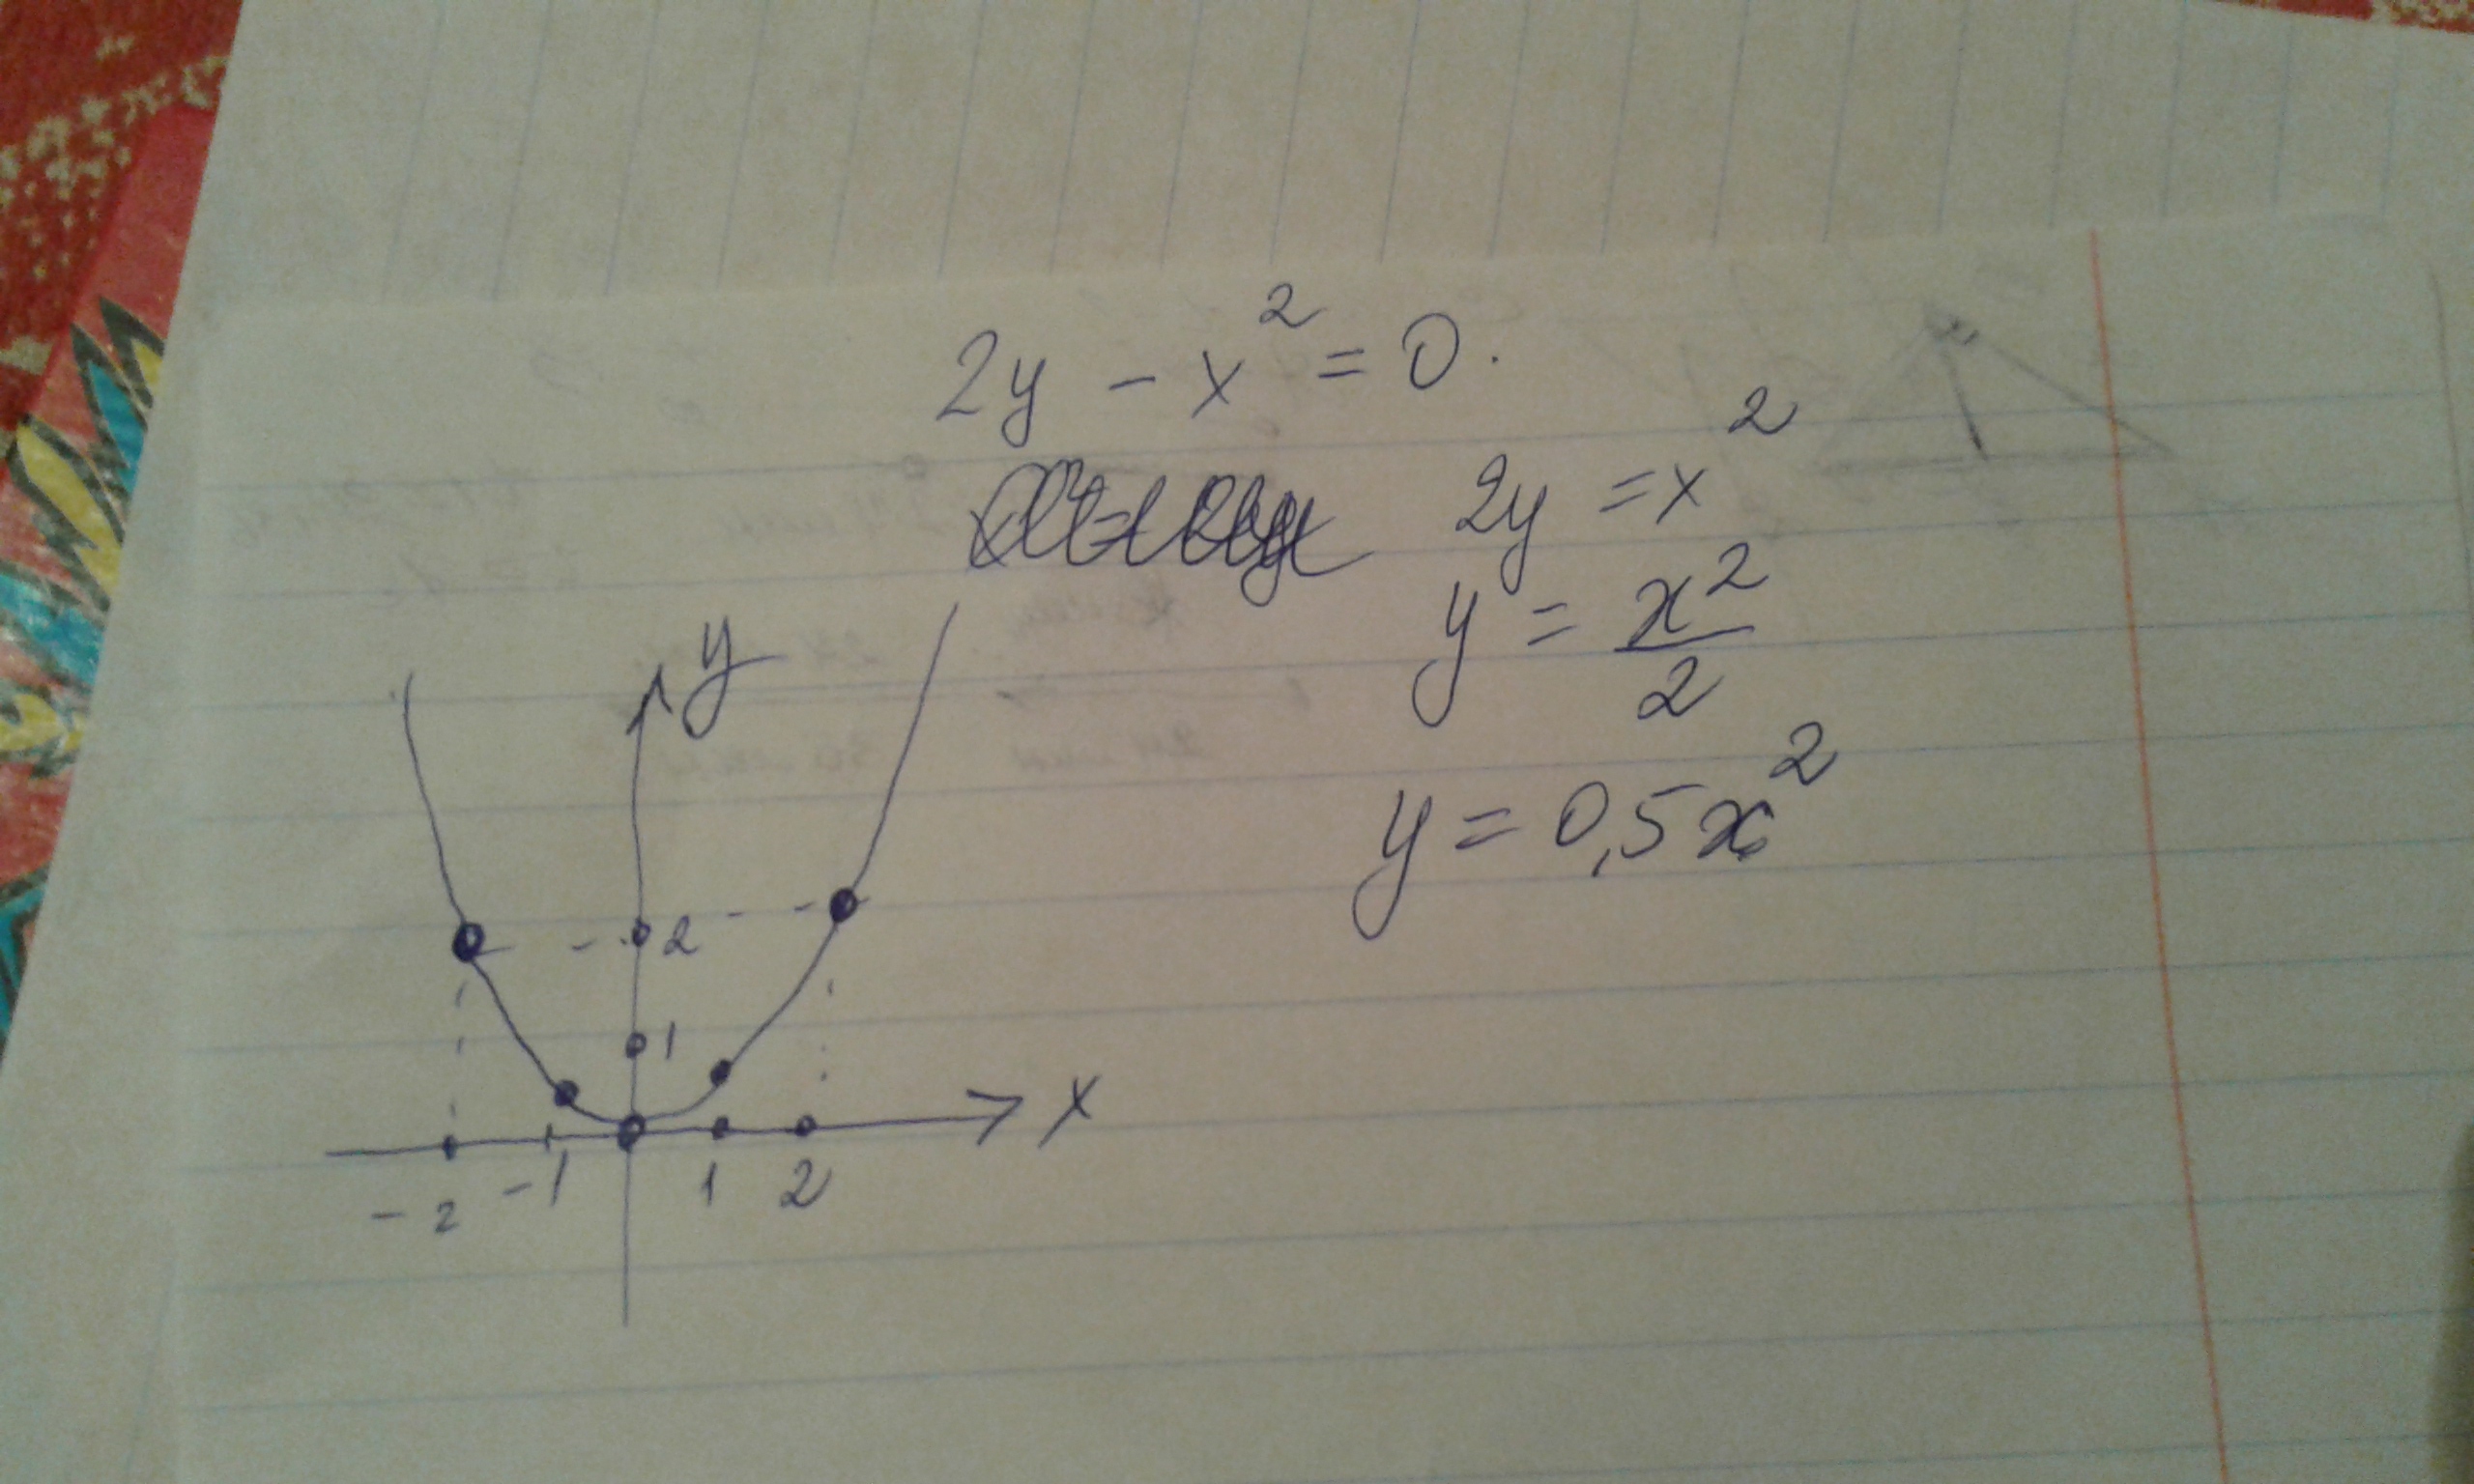 2y - x² = 0.
2y = x²
y = x²/2
y = 0,5x²
y
2
1
x
-2 -1 1 2